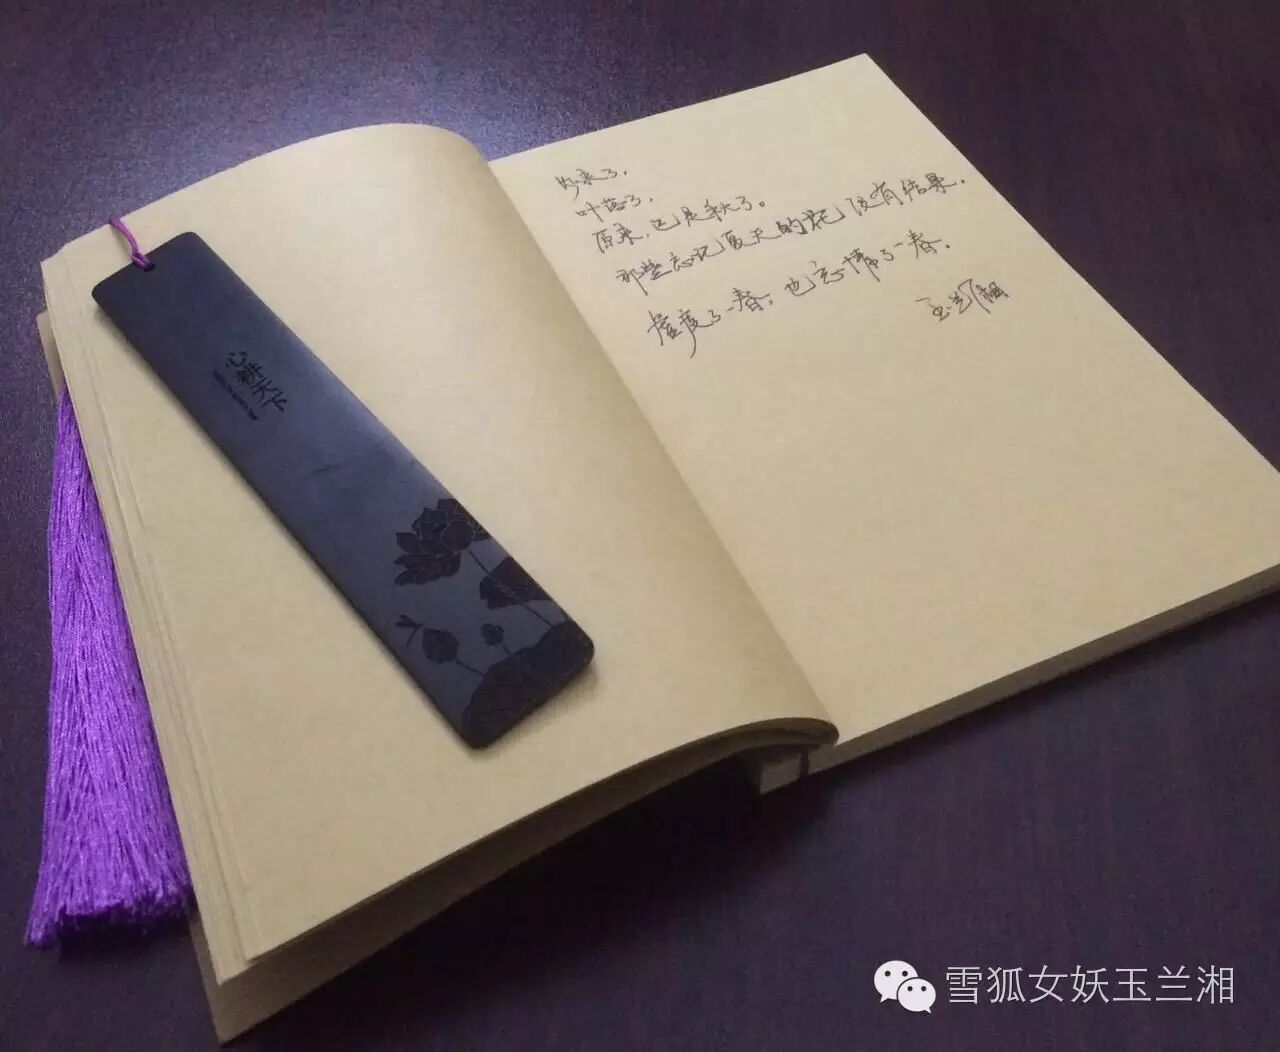 心耕天下
叶落了，
原来，已是秋了。
那些忘记夏天的花，没有结果。
虚度了一春，也忘情了一春。
玉兰湘
雪狐女妖玉兰湘